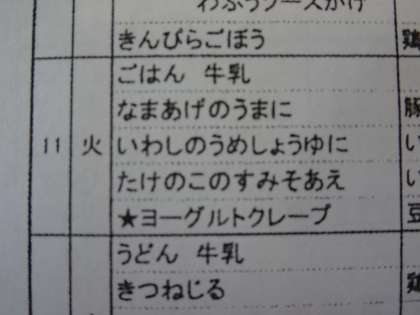 わふうソースかけ
きんぴらごぼう
鶏
ごはん 牛乳
なまあげのうまに
豚
11 火 いわしのうめしょうゆに
い
たけのこのすみそあえ
い
★ヨーグルトクレープ
豆
うどん 牛乳
きつねじる
鶏